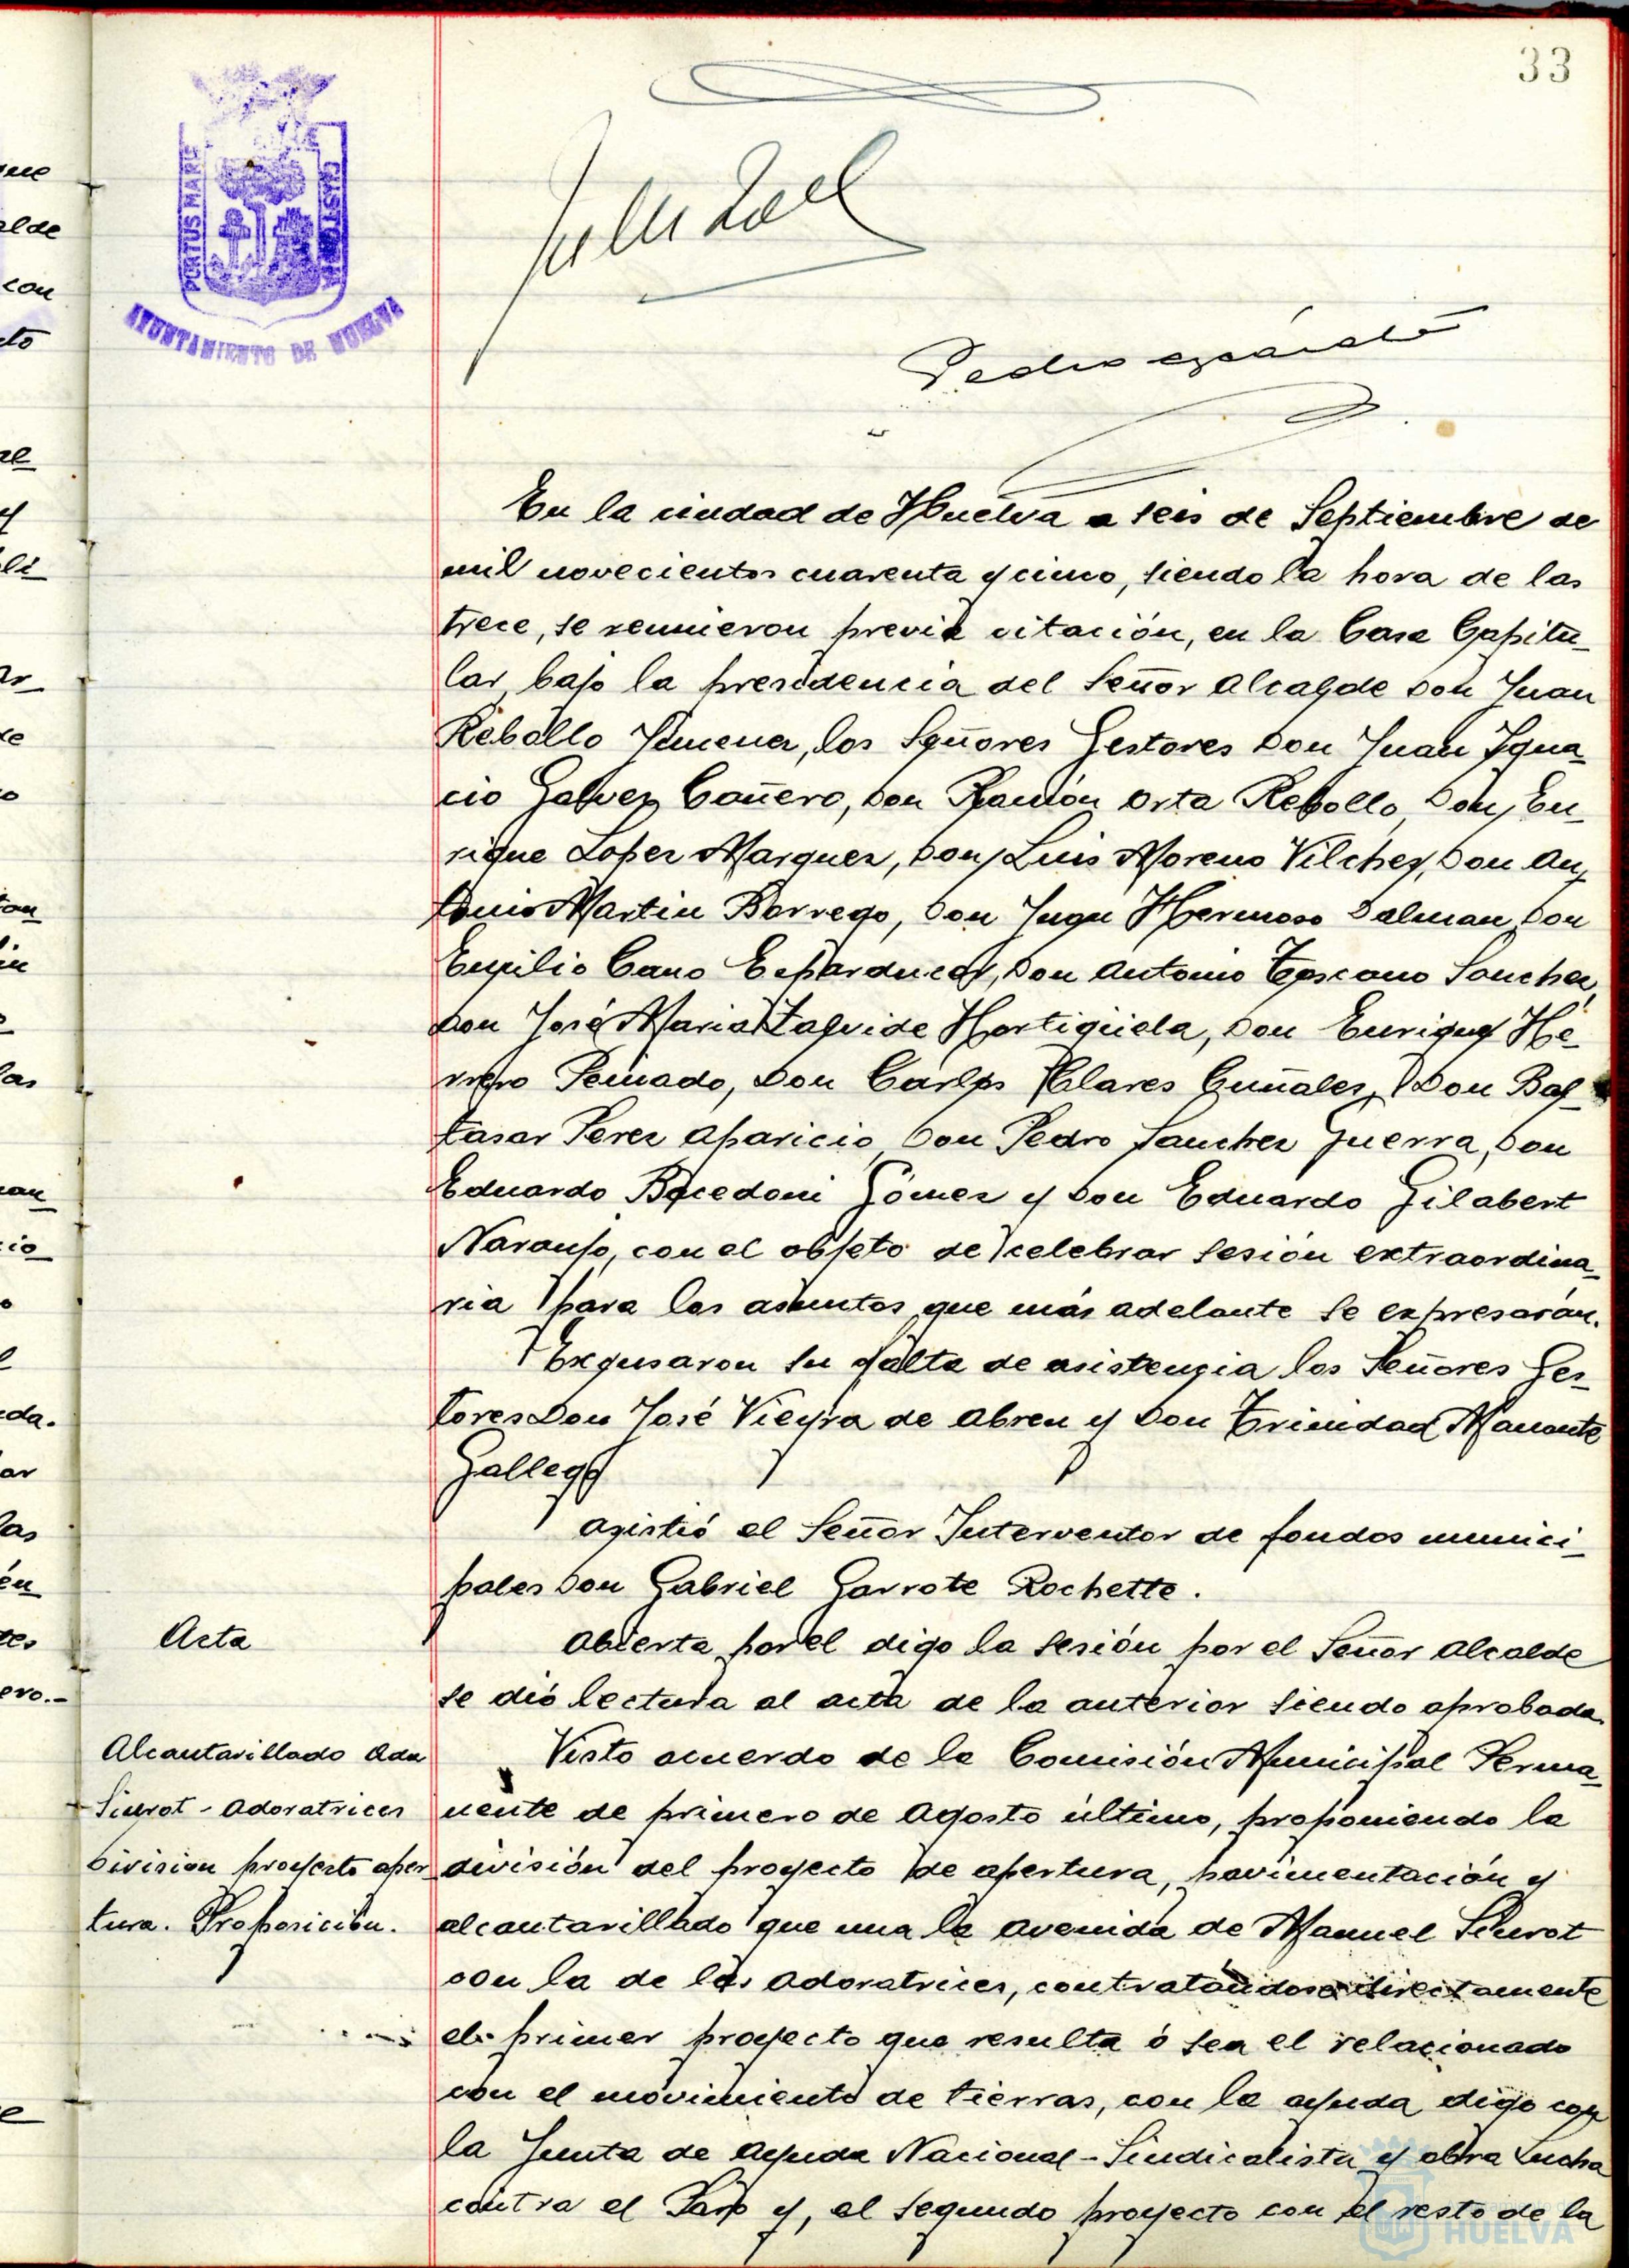 33
PORTUS MARIS
CUSTODIA
AYUNTAMIENTO DE HUELVA
Pedro
En la ciudad de Huelva a seis de Septiembre de
mil novecientos cuarenta y cinco, siendo la hora de las
trece, se reunieron previa citación, en la Casa Capitu-
lar, bajo la presidencia del Señor Alcalde Don Juan
Rebollo Jimenez, los Señores Gestores Don Juan Igna-
cio Galvez Cañero, Don Ramón Orta Rebollo, Don En-
rique Lopez Marquez, Don Luis Moreno Vilchez, Don An-
tonio Martin Borrego, Don Juan Hermoso Dalman, Don
Emilio Cano Esparducer, Don Antonio Toscano Sanchez,
Don José Maria Zalvide Hortigüela, Don Enrique He-
rrero Peinado, Don Carlos Clares Cuñales, Don Bal-
tasar Perez Aparicio, Don Pedro Sanchez Guerra, Don
Eduardo Bocedoni Gómez y Don Eduardo Gilabert
Naranjo, con el objeto de celebrar sesión extraordina-
ria para los asuntos que más adelante se expresarán.
Excusaron su falta de asistencia los Señores Ges-
tores Don José Vieyra de Abreu y Don Trinidad Manante
Gallego
Asistió el Señor Interventor de fondos munici-
pales Don Gabriel Garrote Rochette.
Acta
Abierta por el digo la sesión por el Señor Alcalde
se dió lectura al acta de la anterior siendo aprobada.
Alcantarillado Ada
Siurot - Adoratrices
Division proyecto aper-
tura. Proposición.
Visto acuerdo de la Comisión Municipal Perma-
nente de primero de Agosto último, proponiendo la
división del proyecto de apertura, pavimentación y
alcantarillado que una la avenida de Manuel Siurot
con la de las Adoratrices, contratándose directamente
el primer proyecto que resulta ó sea el relacionado
con el movimiento de tierras, con la ayuda digo con
la Junta de Ayuda Nacional-Sindicalista y obra Lucha
contra el Paro y, el segundo proyecto con el resto de la
HUELVA